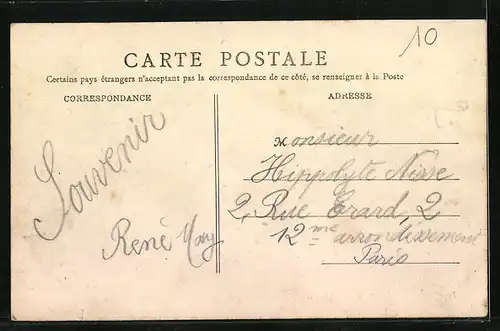 10
CARTE POSTALE
Certains pays étrangers n'acceptant pas la correspondance de ce côté, se renseigner à la Poste
CORRESPONDANCE
ADRESSE
Souvenir
René
Monsieur
Hippolyte Nisse
2, Rue Erard, 2
12me arrondissement
Paris